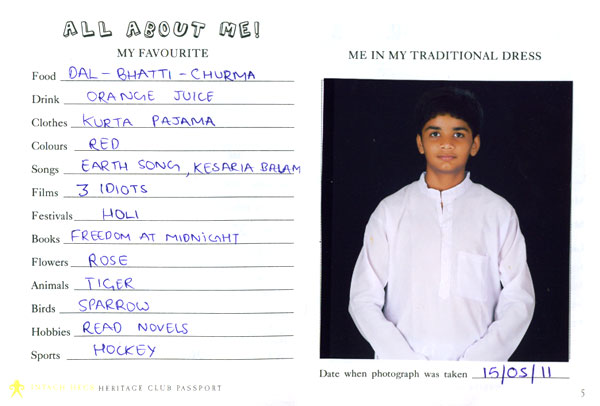 ALL ABOUT ME!
MY FAVOURITE
Food DAL - BHATTI - CHURMA
Drink ORANGE JUICE
Clothes KURTA PAJAMA
Colours RED
Songs EARTH SONG, KESARIA BALAM
Films 3 IDIOTS
Festivals HOLI
Books FREEDOM AT MIDNIGHT
Flowers ROSE
Animals TIGER
Birds SPARROW
Hobbies READ NOVELS
Sports HOCKEY
HERITAGE CLUB PASSPORT
ME IN MY TRADITIONAL DRESS
Date when photograph was taken 15/05/11
5